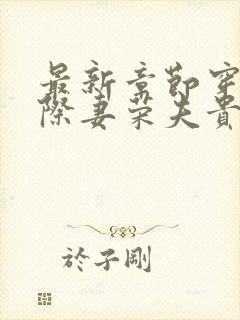 最新章節穿
際妻荣夫貴
於子剛